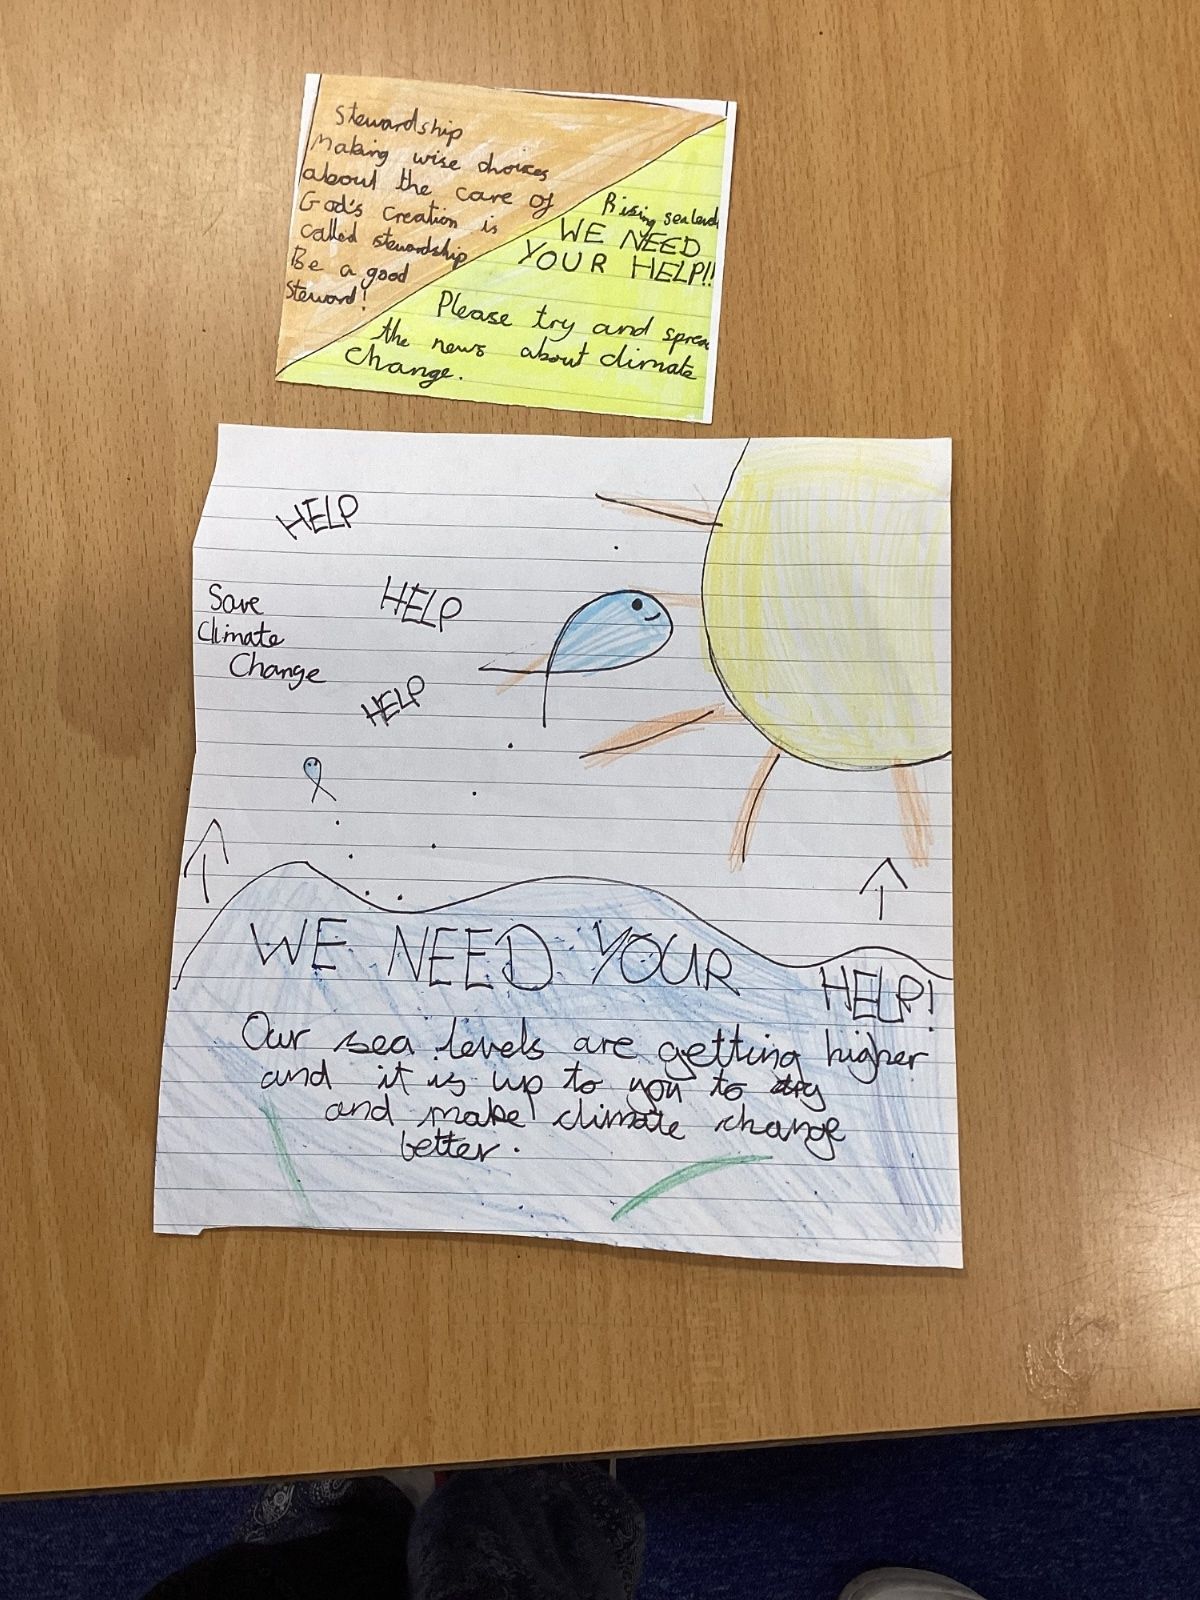 Stewardship
Making wise choices
about the care of
God's creation is
called stewardship
Be a good
Steward!
Rising sea level
WE NEED
YOUR HELP!!
Please try and sprea
the news about climate
change.
HELP
HELP
Save
Climate
Change
HELP
WE NEED YOUR HELP!
Our sea levels are getting higher
and it is up to you to try
and make climate change
better.